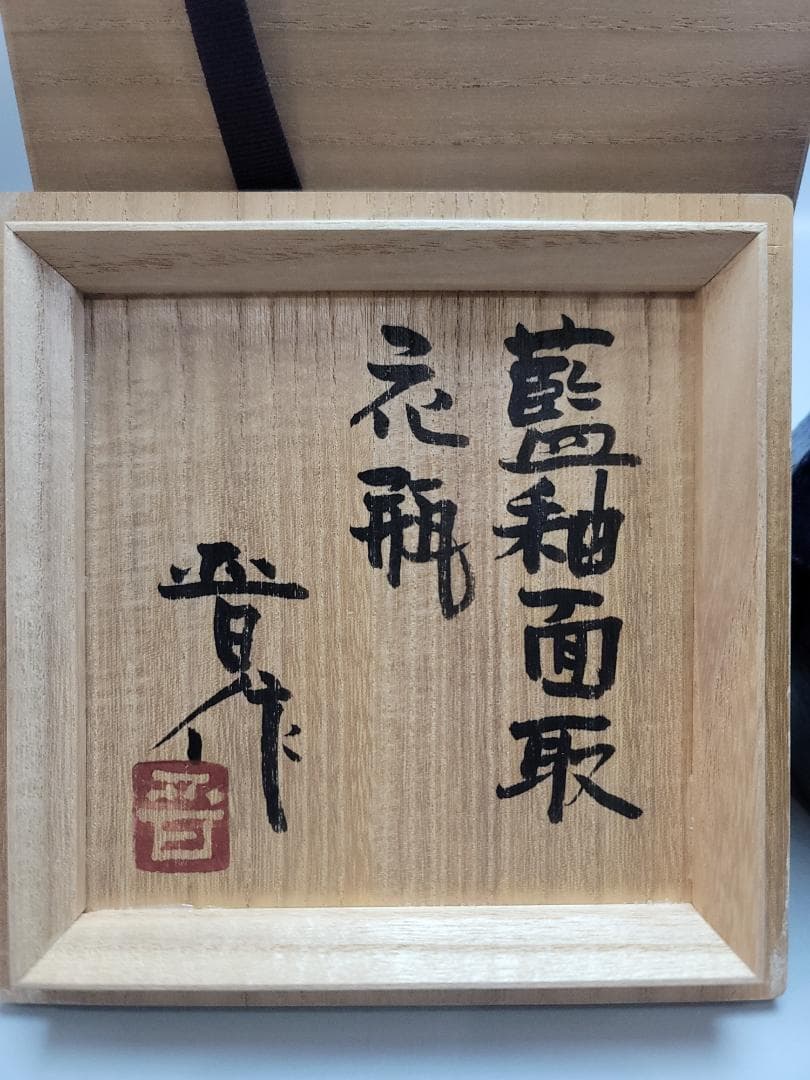 藍釉面取
花瓶
晋作
晋